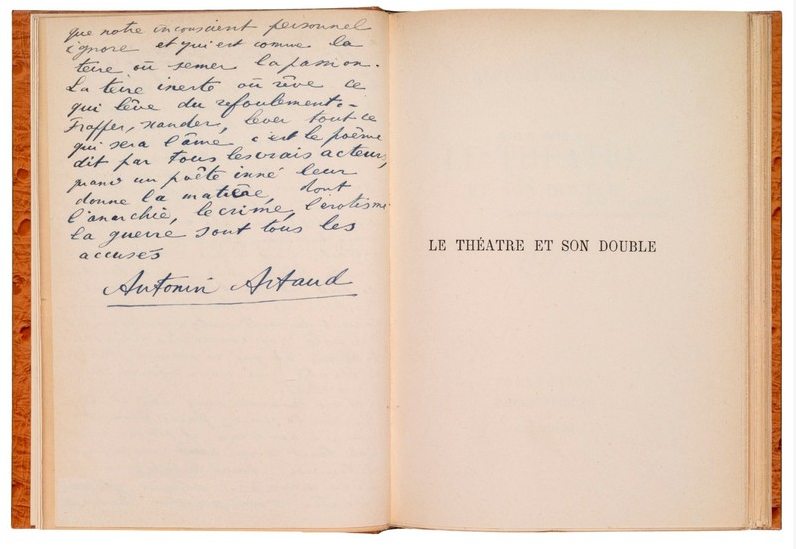 que notre inconscient personnel
ignore et qui est comme la
terre où semer la passion.
La terre inerte où rêve ce
qui lève du refoulement.
Frapper, scander, lever tout ce
qui sera l'âme c'est le poême
dit par tous les vrais acteurs,
quand un poête inné leur
donne la matière, dont
l'anarchie, le crime, l'érotisme
la guerre sont tous les
accusés
Antonin Artaud
LE THÉATRE ET SON DOUBLE